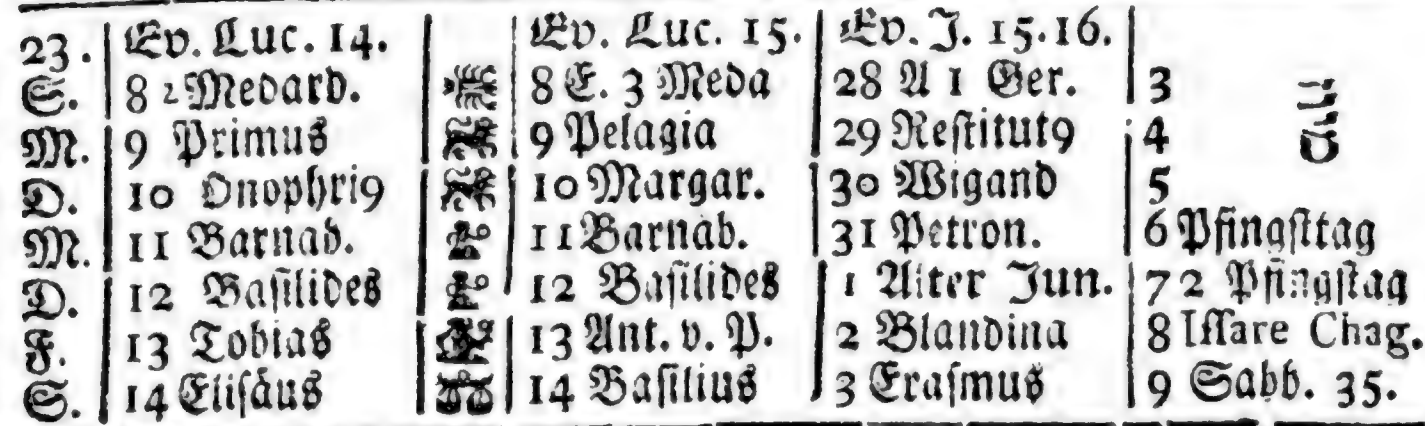 23. Ev. Luc. 14. Ev. Luc. 15. Ev. J. 15.16.
S. 8 2 Medard. 8 E. 3 Meda 28 A 1 Ger. 3
M. 9 Primus 9 Pelagia 29 Restitut9 4
D. 10 Onophri9 10 Margar. 30 Wigand 5
M. 11 Barnab. 11 Barnab. 31 Petron. 6 Pfingsttag
D. 12 Basilides 12 Basilides 1 Alter Jun. 7 2 Pfingstag
F. 13 Tobias 13 Ant. v. P. 2 Blandina 8 Issare Chag.
S. 14 Elisäus 14 Basilius 3 Erasmus 9 Sabb. 35.